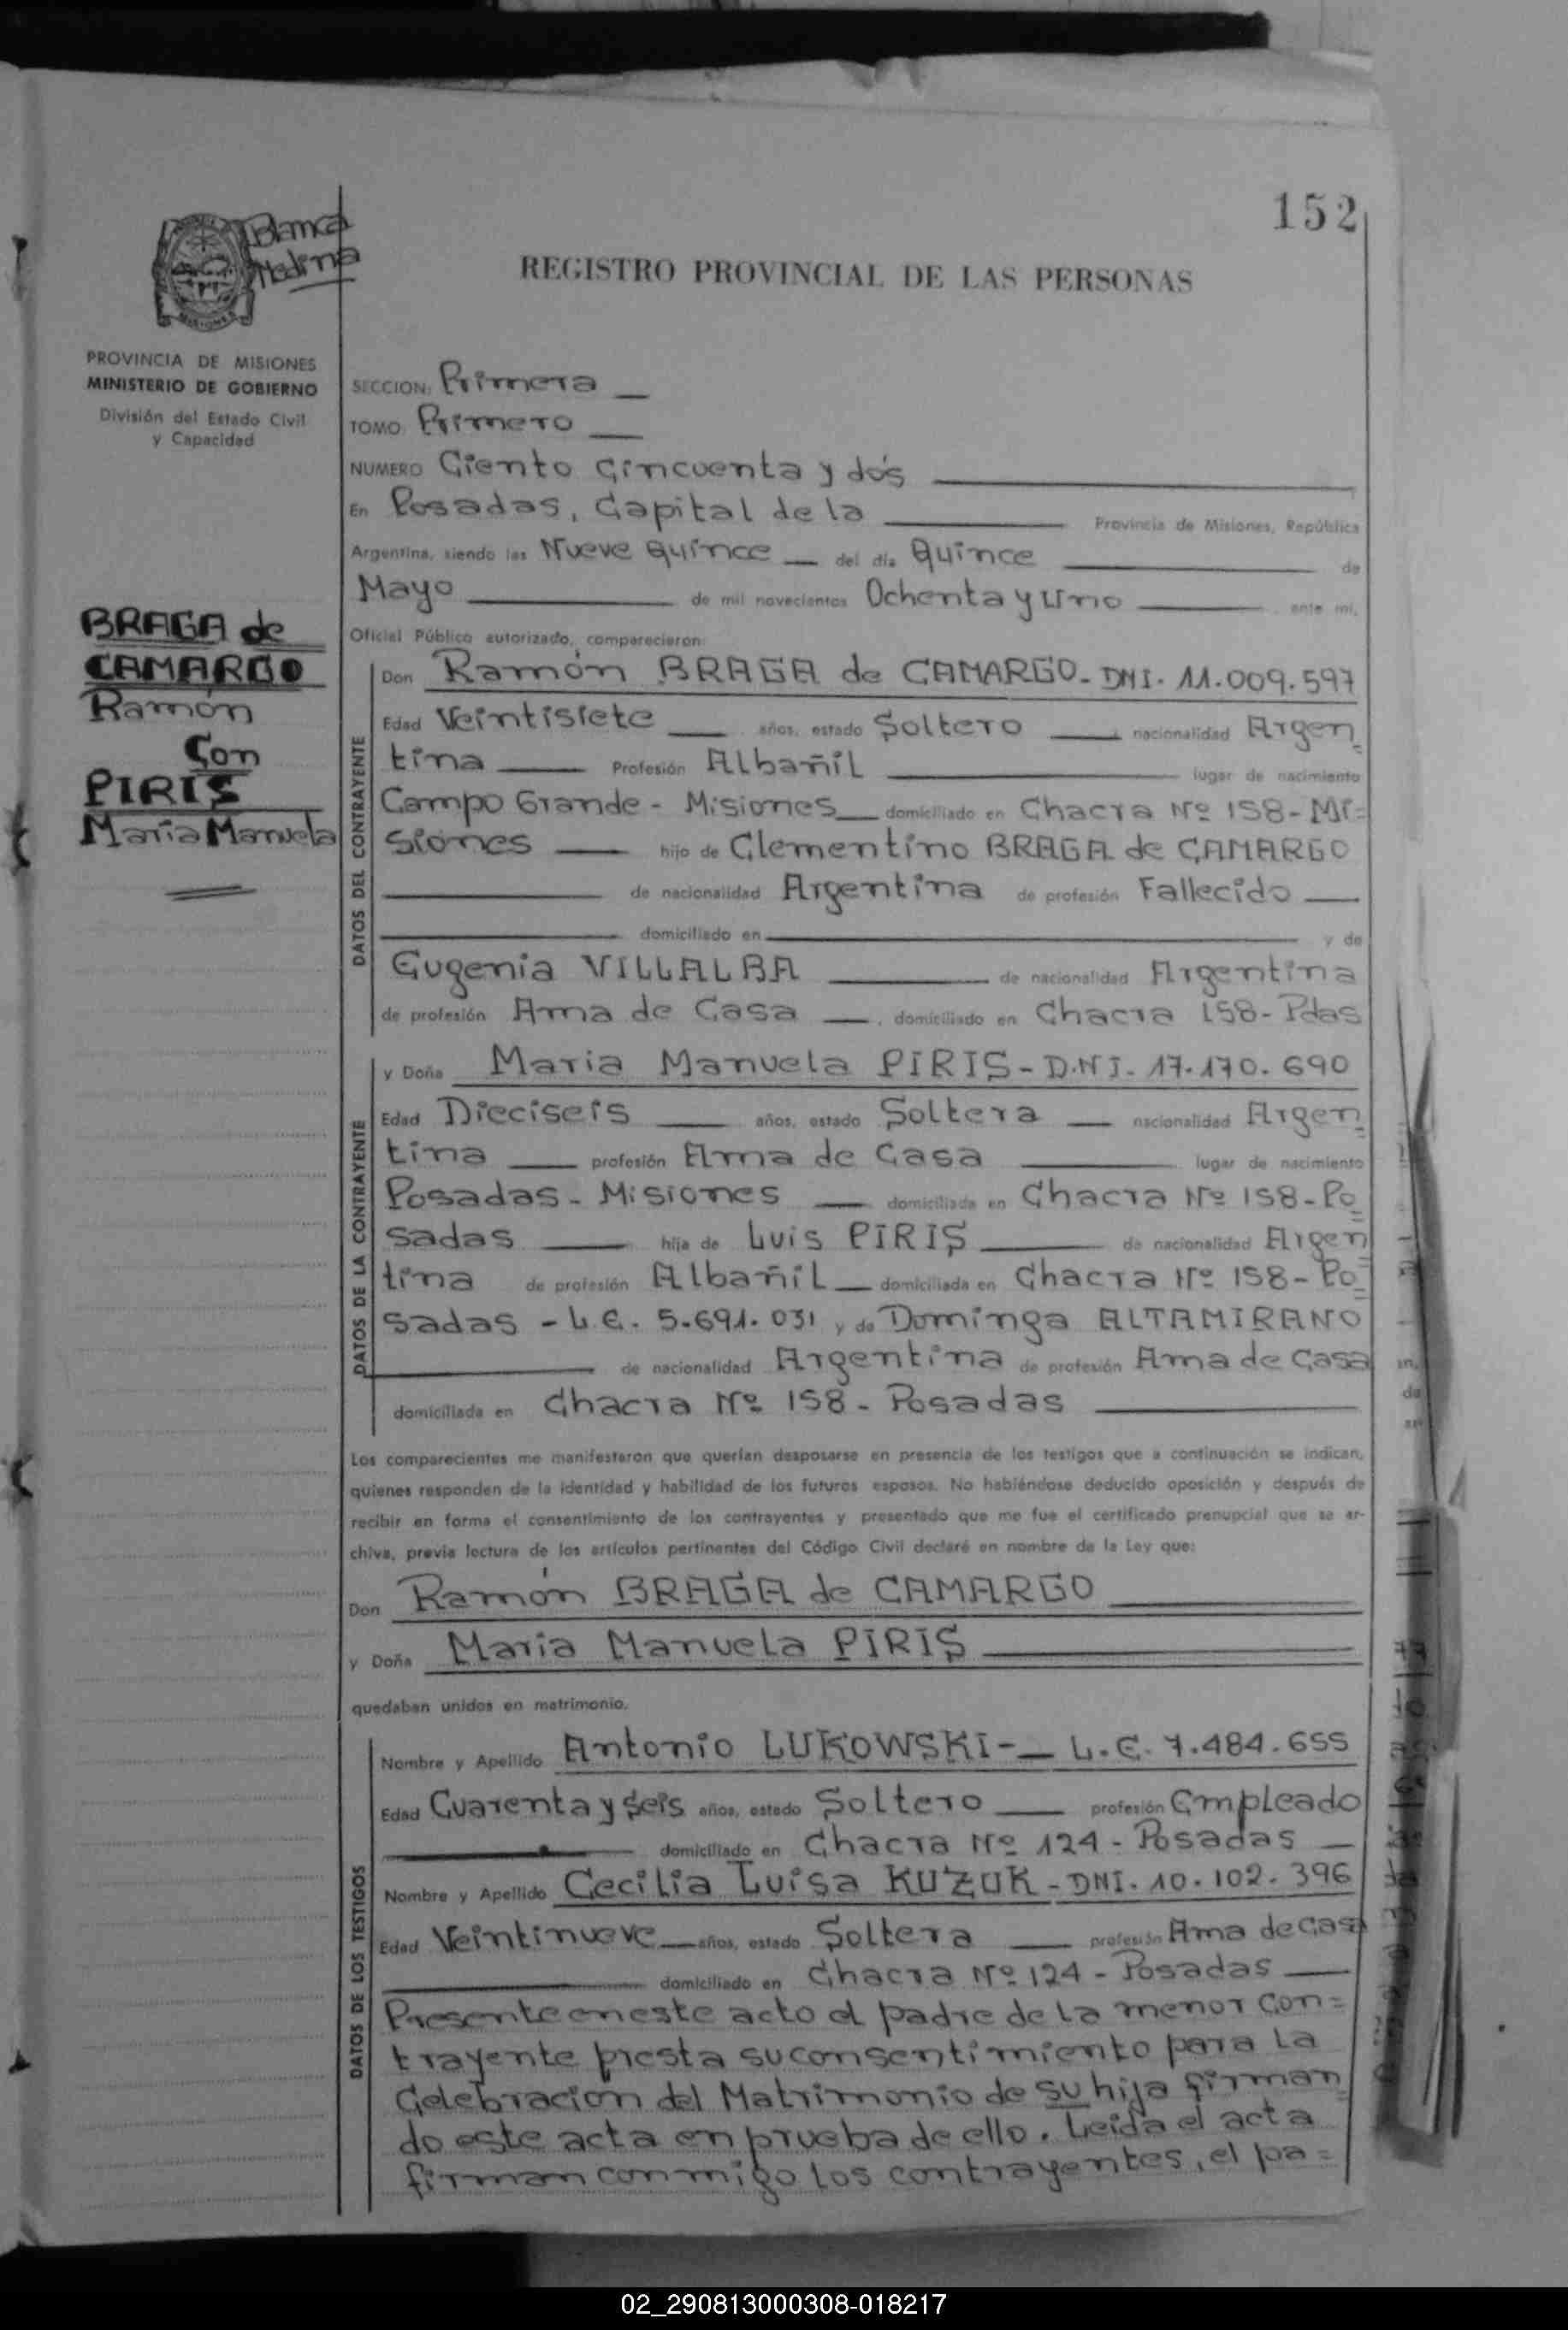 152
Blanca
Medina
REGISTRO PROVINCIAL DE LAS PERSONAS
MISIONES
PROVINCIA DE MISIONES
MINISTERIO DE GOBIERNO
División del Estado Civil
y Capacidad
BRAGA de
CAMARGO
Ramón
Con
PIRIS
Maria Manuela
SECCION: Primera
TOMO: Primero
NUMERO Ciento Cincuenta y dós
En Posadas, Capital de la Provincia de Misiones, República
Argentina, siendo las Nueve Quince del día Quince de
Mayo de mil novecientos Ochenta y Uno ante mi,
Oficial Público autorizado, comparecieron:
DATOS DEL CONTRAYENTE
Don Ramón BRAGA de CAMARGO- DNI. 11.009.597
Edad Veintisiete años, estado Soltero nacionalidad Argen=
tina Profesión Albañil lugar de nacimiento
Campo Grande - Misiones domiciliado en Chacra Nº 158-Mi=
siones hijo de Clementino BRAGA de CAMARGO
de nacionalidad Argentina de profesión Fallecido
domiciliado en y de
Eugenia VILLALBA de nacionalidad Argentina
de profesión Ama de Casa , domiciliado en Chacra 158- Pdas
DATOS DE LA CONTRAYENTE
y Doña Maria Manuela PIRIS- D.N.I. 17.170.690
Edad Dieciseis años, estado Soltera nacionalidad Argen=
tina profesión Ama de Casa lugar de nacimiento
Posadas - Misiones domiciliada en Chacra Nº 158-Po=
sadas hija de Luis PIRIS de nacionalidad Argen
tina de profesión Albañil domiciliada en Chacra Nº 158- Po=
sadas - L.E. 5.691.031 y de Dominga ALTAMIRANO
de nacionalidad Argentina de profesión Ama de Casa
domiciliada en Chacra Nº 158 - Posadas
Los comparecientes me manifestaron que querían desposarse en presencia de los testigos que a continuación se indican,
quienes responden de la identidad y habilidad de los futuros esposos. No habiéndose deducido oposición y después de
recibir en forma el consentimiento de los contrayentes y presentado que me fue el certificado prenupcial que se ar-
chiva, previa lectura de los artículos pertinentes del Código Civil declaré en nombre de la Ley que:
Don Ramón BRAGA de CAMARGO
y Doña Maria Manuela PIRIS
quedaban unidos en matrimonio.
DATOS DE LOS TESTIGOS
Nombre y Apellido Antonio LUKOWSKI- L.E. 7.484.655
Edad Cuarenta y Seis años, estado Soltero profesión Empleado
domiciliado en Chacra Nº 124 - Posadas
Nombre y Apellido Cecilia Luisa KUZUK - DNI. 10.102.396
Edad Veintinueve años, estado Soltera profesión Ama de Casa
domiciliado en Chacra Nº 124 - Posadas
Presente en este acto el padre de la menor con=
trayente presta su consentimiento para la
Celebracion del Matrimonio de su hija firman=
do este acta en prueba de ello. Leida el acta
firman conmigo los contrayentes, el pa=
02_290813000308-018217